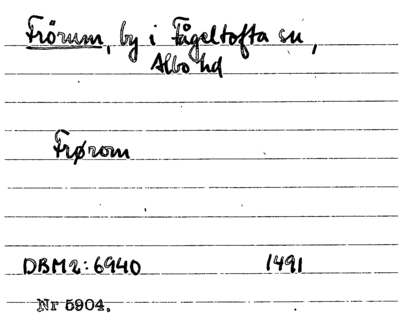 Frörum, by i Fågeltofta sn,
Albo hd
Frørom
DBM2:6940 1491
Nr 5904.